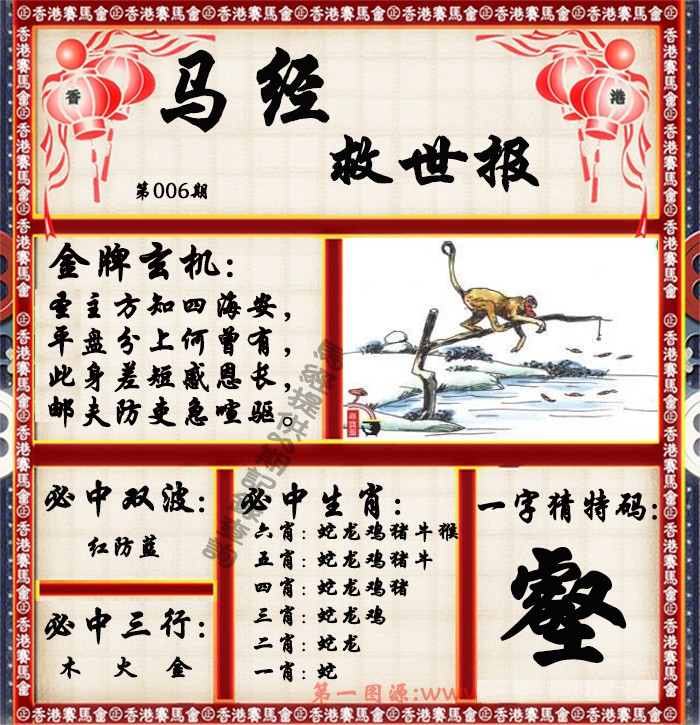 香港賽馬會㊣香港賽馬會㊣香港賽馬會㊣香港賽馬會㊣香港賽馬會
香
港
马经
救世报
第006期
金牌玄机:
圣主方知四海安,
平盘分上何曾有,
此身差短感恩长,
邮夫防吏急喧驱。
必中双波:
红防蓝
必中三行:
木 火 金
必中生肖:
六肖:蛇龙鸡猪牛猴
五肖:蛇龙鸡猪牛
四肖:蛇龙鸡猪
三肖:蛇龙鸡
二肖:蛇龙
一肖:蛇
一字猜特码:
壑
第一图源:www